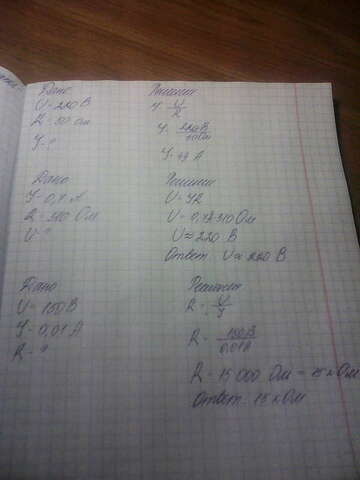 Дано
U = 220 В
R = 50 Ом
I - ?
Решение
I = U/R
I = 220 В/50 Ом
Дано
R = 310 Ом
U - ?
Решение
U = IR
U ≈ 220 В
Ответ: U ≈ 220 В
Дано
U = 150 В
I = 0,01 А
R - ?
Решение
R = U/I
R = 150 В/0,01 А
R = 15 000 Ом = 15 кОм
Ответ: 15 кОм